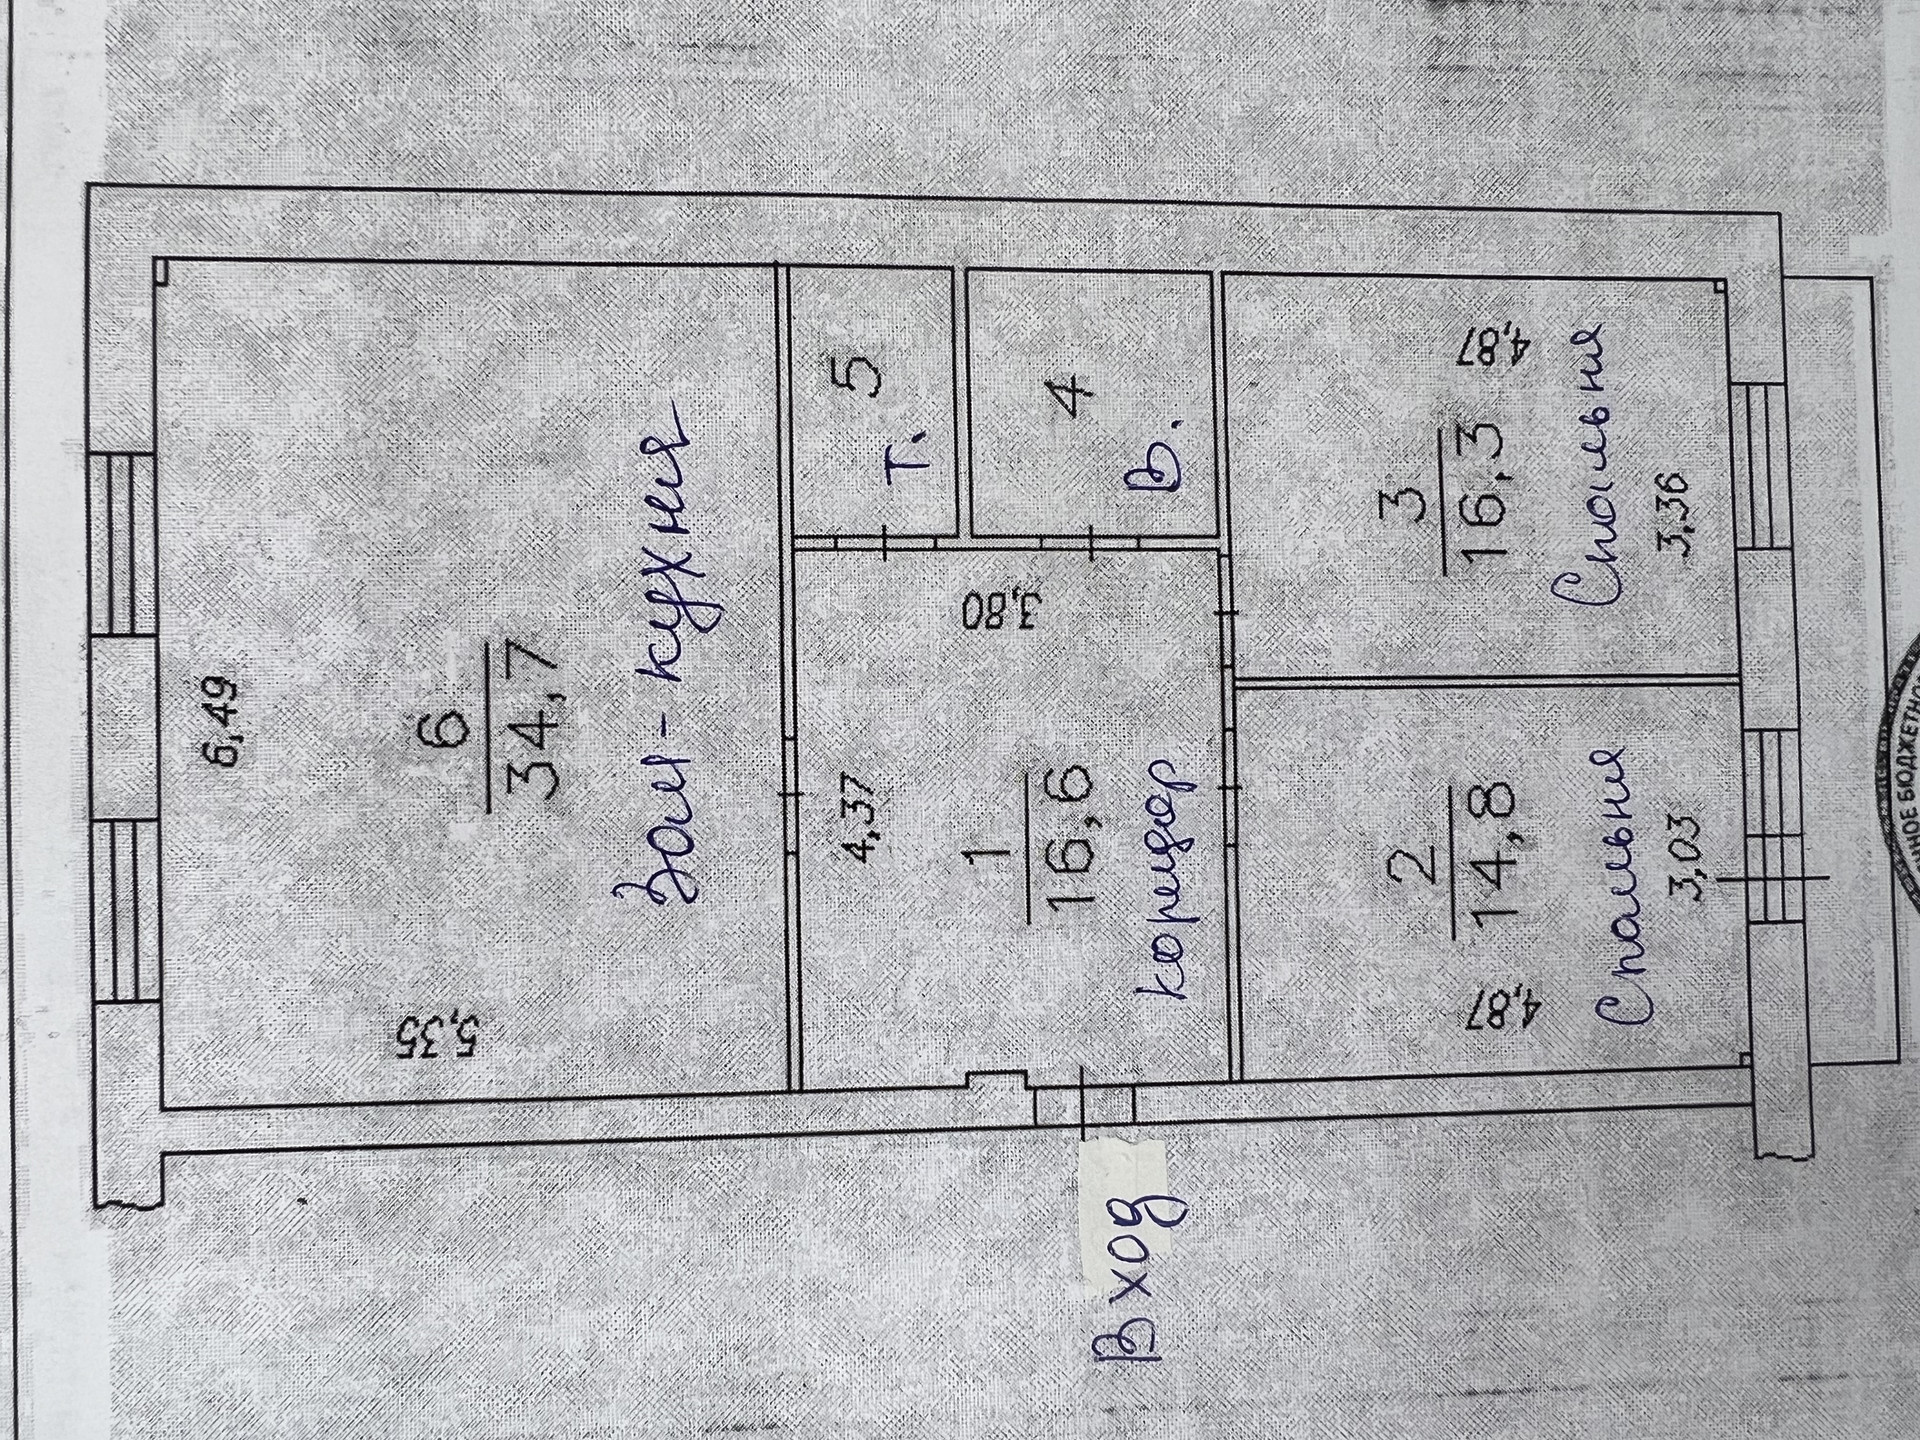 6,49
6
34,7
5,35
Зал-кухня
5
т.
4
В.
3,80
4,37
1
16,6
коридор
Вход
3
16,3
4,87
Спальня
3,36
2
14,8
4,87
Спальня
3,03
НОЕ БЮДЖЕТНО